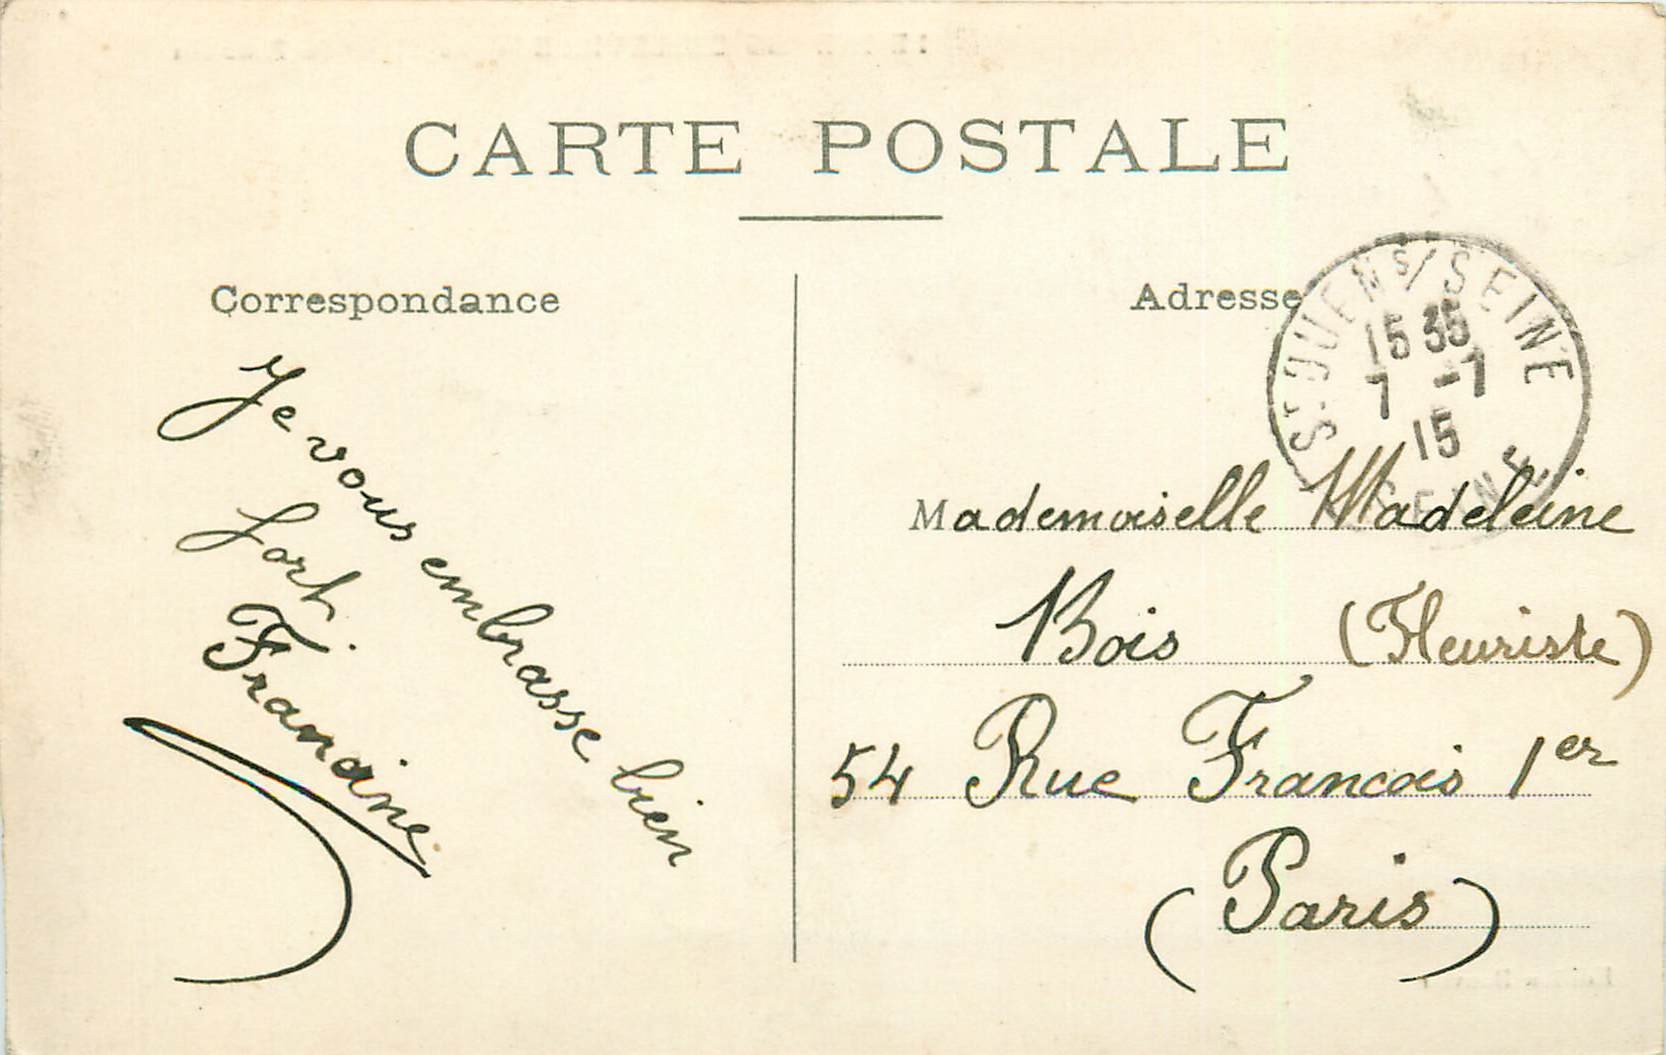 CARTE POSTALE
Correspondance
Je vous embrasse bien
fort.
Francine
Adresse
ST-OUEN S/SEINE
15 35
7 -7
15
SEINE
Mademoiselle Madeleine
Bois (Fleuriste)
54 Rue Francois 1er
(Paris)